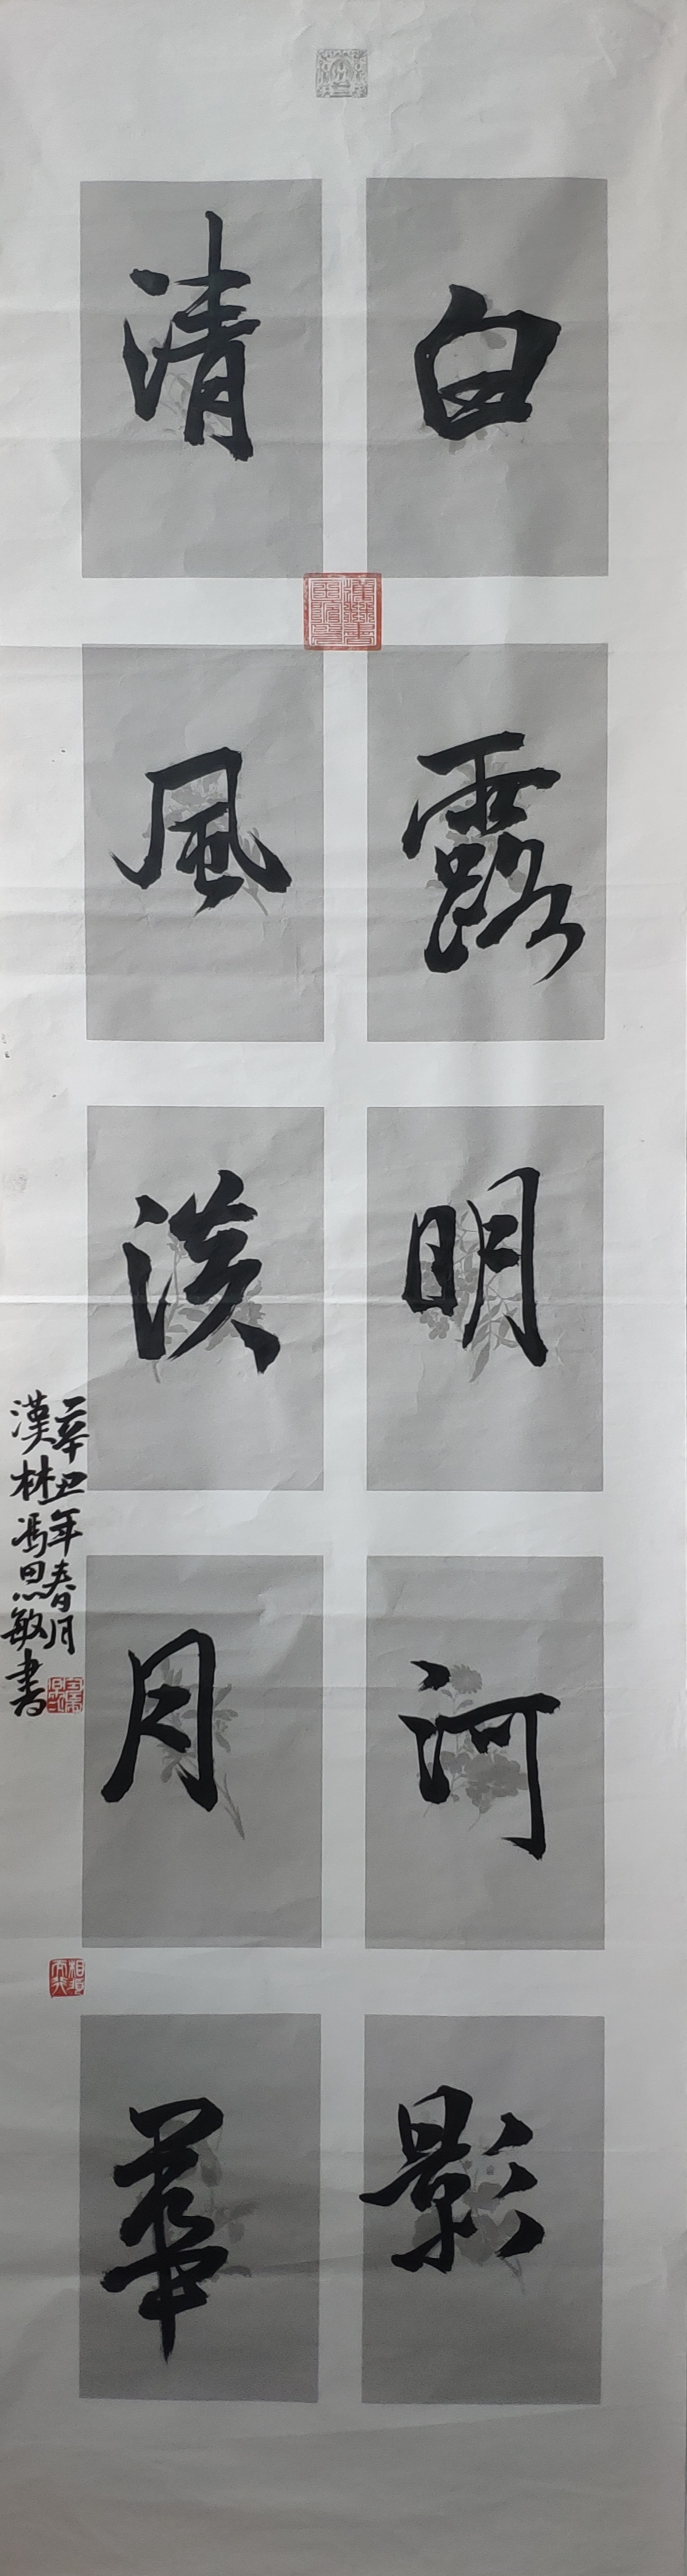 白露明河影
清風淡月華
辛丑年春月
漢林馮思敏書